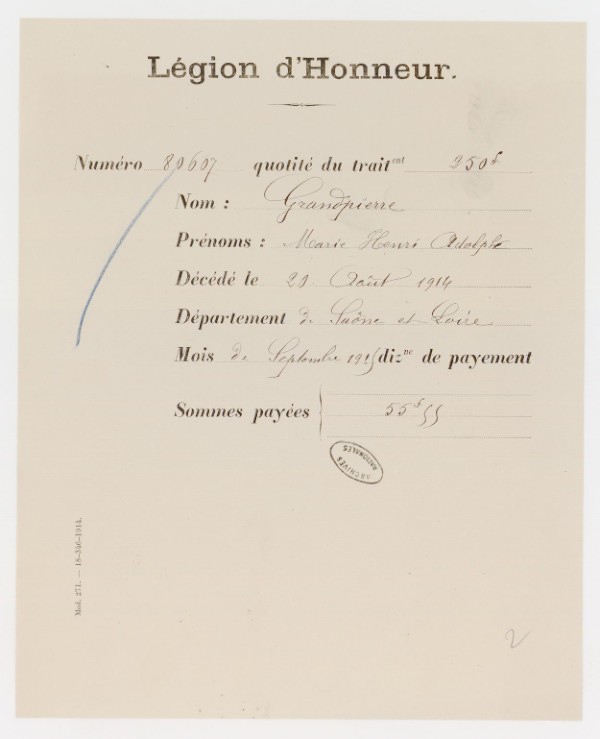 Légion d'Honneur.
Numéro 80607 quotité du trait^ent 250^f
Nom : Grandpierre
Prénoms : Marie Henri Adolphe
Décédé le 20 Août 1914
Département de Saône et Loire
Mois de Septembre 1915 diz^ne de payement
Sommes payées 55^f 55
ARCHIVES
NATIONALES
Mod. 271. — 18-346-1914.
2